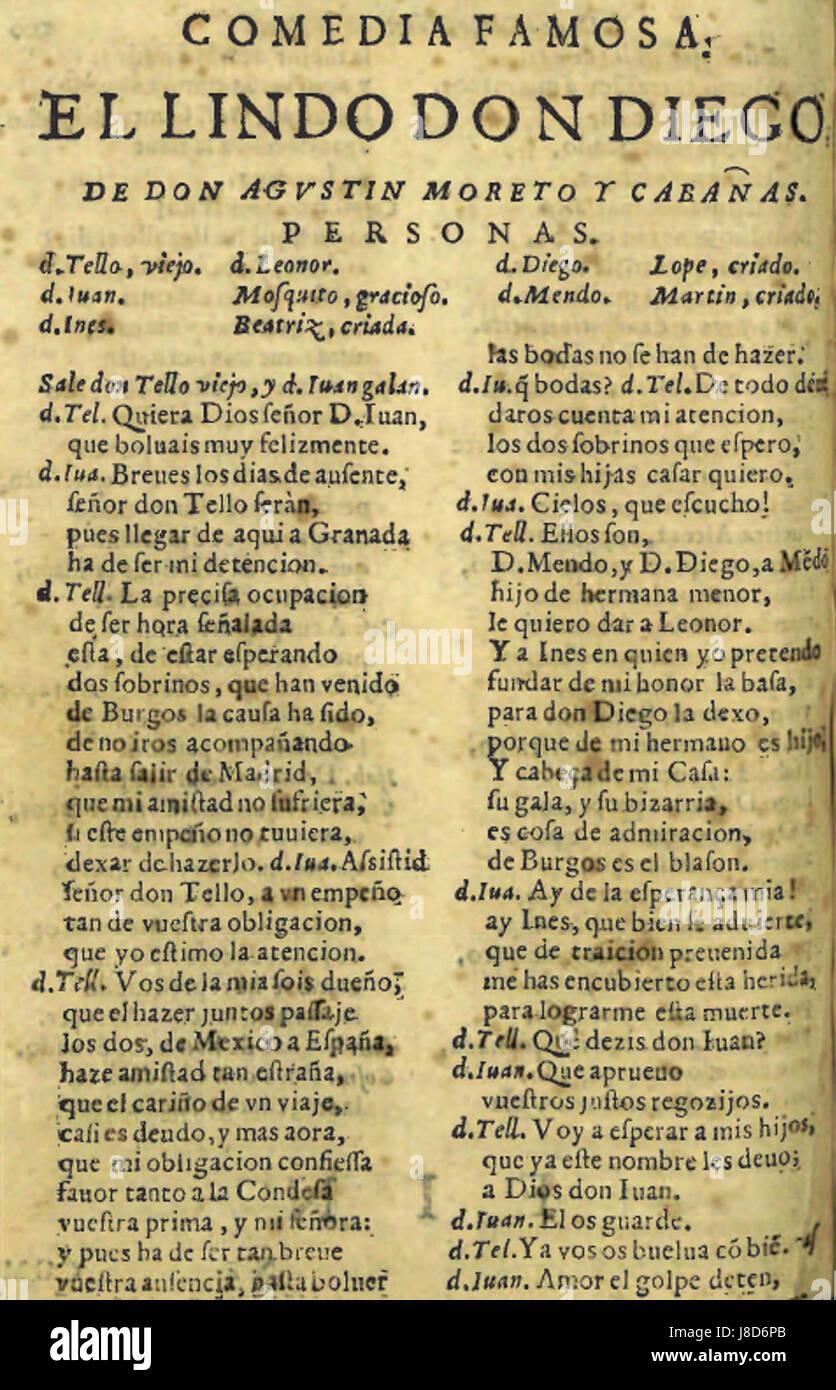 COMEDIA FAMOSA.
EL LINDO DON DIEGO
DE DON AGVSTIN MORETO Y CABAÑAS.
PERSONAS.
d.Tello, viejo. d.Leonor. d.Diego. Lope, criado.
d.Iuan. Moſquito, gracioſo. d.Mendo. Martin, criado.
d.Ines. Beatriz, criada.
Sale don Tello viejo, y d. Iuan galan.
d.Tel. Quiera Dios ſeñor D. Iuan,
que boluais muy felizmente.
d.Iua. Breues los dias de auſente,
ſeñor don Tello ſeràn,
pues llegar de aqui a Granada
ha de ſer mi detencion.
d.Tell. La preciſa ocupacion
de ſer hora ſeñalada
eſta, de eſtar eſperando
dos ſobrinos, que han venido
de Burgos la cauſa ha ſido,
de no iros acompañando
haſta ſalir de Madrid,
que mi amiſtad no ſufriera,
ſi eſte empeño no tuuiera,
dexar de hazerlo. d.Iua. Aſsiſtid
ſeñor don Tello, a vn empeño
tan de vueſtra obligacion,
que yo eſtimo la atencion.
d.Tell. Vos de la mia ſois dueño,
que el hazer juntos paſſaje
los dos, de Mexico a Eſpaña,
haze amiſtad tan eſtraña,
que el cariño de vn viaje,
caſi es deudo, y mas aora,
que mi obligacion confieſſa
fauor tanto a la Condeſa
vueſtra prima, y mi ſeñora:
y pues ha de ſer tan breue
vueſtra auſencia, haſta boluer
las bodas no ſe han de hazer.
d.Iu. q̃ bodas? d.Tel. De todo
daros cuenta mi atencion,
los dos ſobrinos que eſpero,
con mis hijas caſar quiero.
d.Iua. Cielos, que eſcucho!
d.Tell. Ellos ſon,
D.Mendo, y D. Diego, a Mẽdo
hijo de hermana menor,
le quiero dar a Leonor.
Y a Ines en quien yo pretendo
fundar de mi honor la baſa,
para don Diego la dexo,
porque de mi hermano es hijo,
Y cabeça de mi Caſa:
ſu gala, y ſu bizarria,
es coſa de admiracion,
de Burgos es el blaſon.
d.Iua. Ay de la eſperança mia!
ay Ines, que bien ſe aduierte,
que de traicion preuenida
me has encubierto eſta herida,
para lograrme eſta muerte.
d.Tell. Que dezis don Iuan?
d.Iuan. Que aprueuo
vueſtros juſtos regozijos.
d.Tell. Voy a eſperar a mis hijos,
que ya eſte nombre les deuo;
a Dios don Iuan.
d.Iuan. El os guarde.
d.Tel. Ya vos os buelua cõ biẽ.
d.Iuan. Amor el golpe deten,
alamy
Image ID: J8D6PB
www.alamy.com